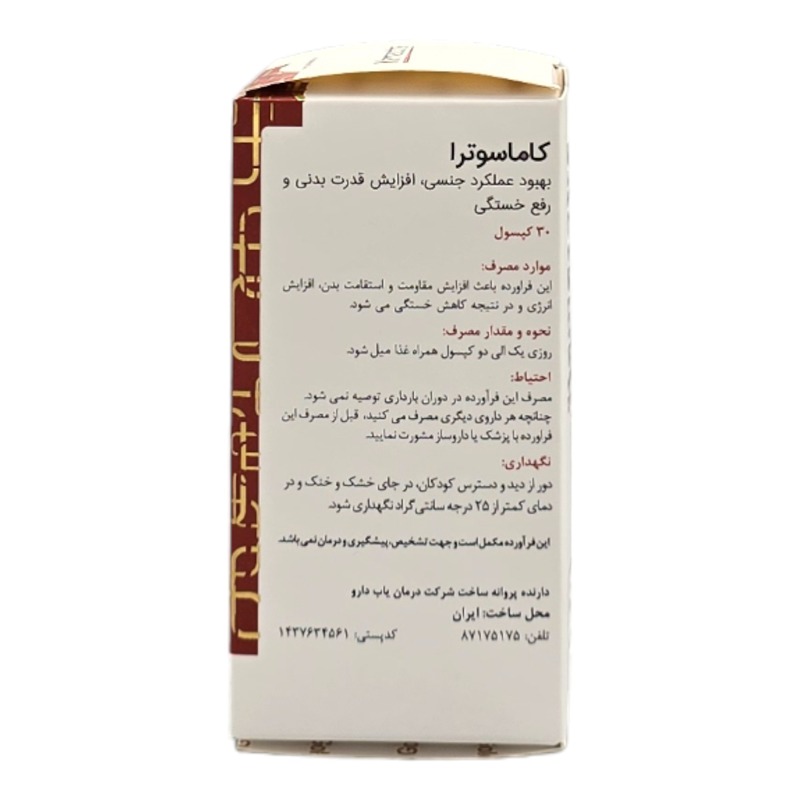 کاماسوترا
بهبود عملکرد جنسی، افزایش قدرت بدنی و
رفع خستگی
۳۰ کپسول
موارد مصرف:
این فراورده باعث افزایش مقاومت و استقامت بدن، افزایش
انرژی و در نتیجه کاهش خستگی می شود.
نحوه و مقدار مصرف:
روزی یک الی دو کپسول همراه غذا میل شود.
احتیاط:
مصرف این فرآورده در دوران بارداری توصیه نمی شود.
چنانچه هر داروی دیگری مصرف می کنید، قبل از مصرف این
فراورده با پزشک یا داروساز مشورت نمایید.
نگهداری:
دور از دید و دسترس کودکان، در جای خشک و خنک و در
دمای کمتر از ۲۵ درجه سانتی گراد نگهداری شود.
این فرآورده مکمل است و جهت تشخیص، پیشگیری و درمان نمی باشد.
دارنده پروانه ساخت شرکت درمان یاب دارو
محل ساخت: ایران
تلفن: ۸۷۱۷۵۱۷۵ کدپستی: ۱۴۳۷۶۳۴۵۶۱